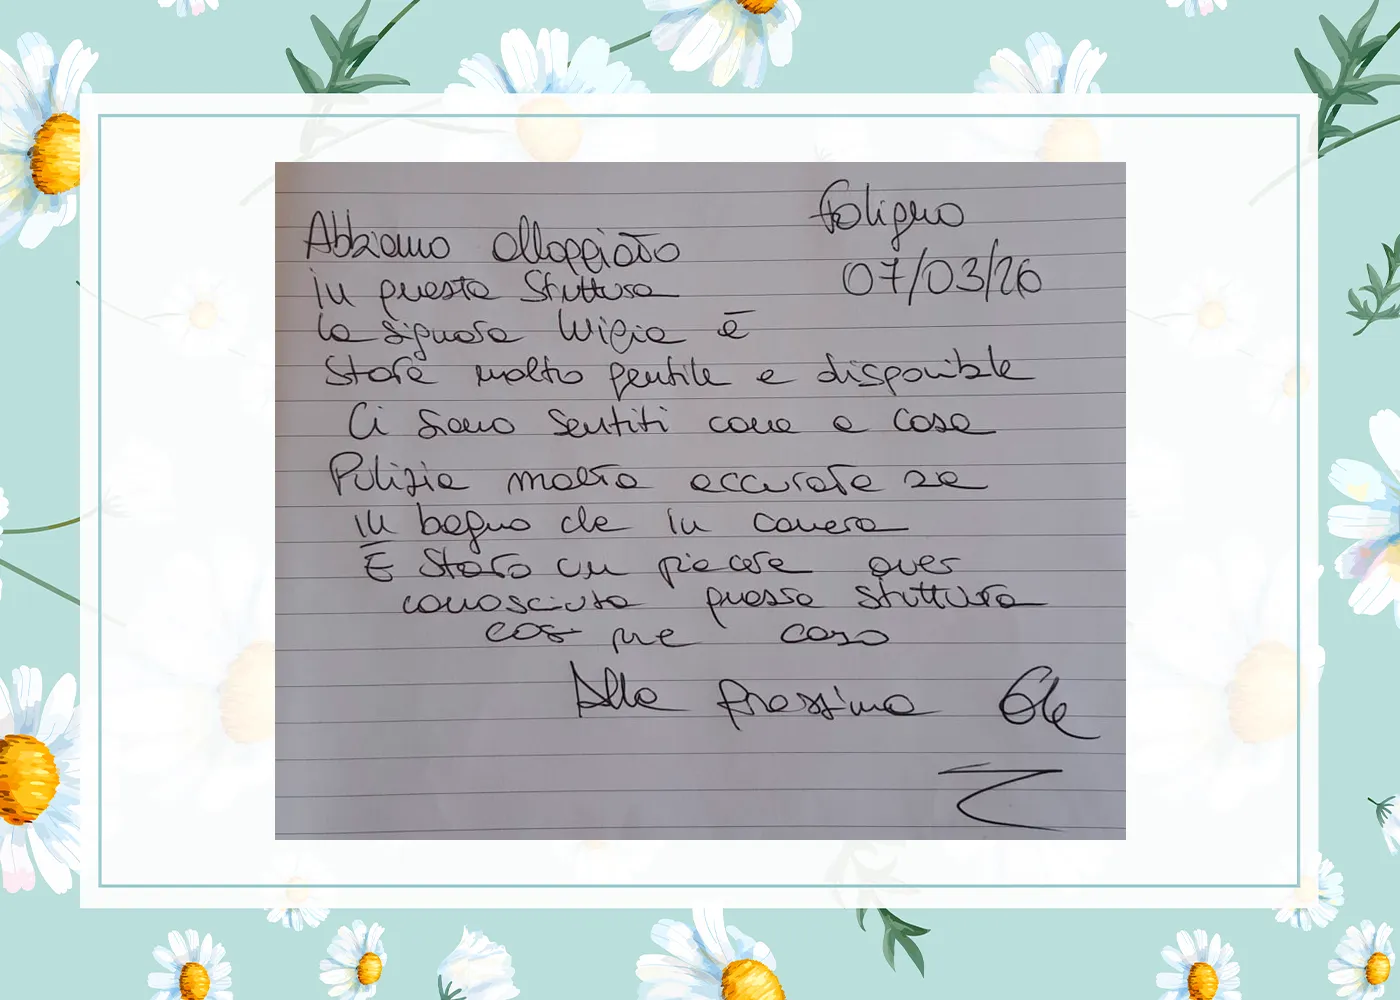 Foligno
07/03/26
Abbiamo alloggiato
in questa struttura
la signora è
stata molto gentile e disponibile
Ci siamo sentiti come a casa
Pulizia molto accurata sia
in bagno che in camera
È stato un piacere aver
conosciuto questa struttura
caso
Alla prossima